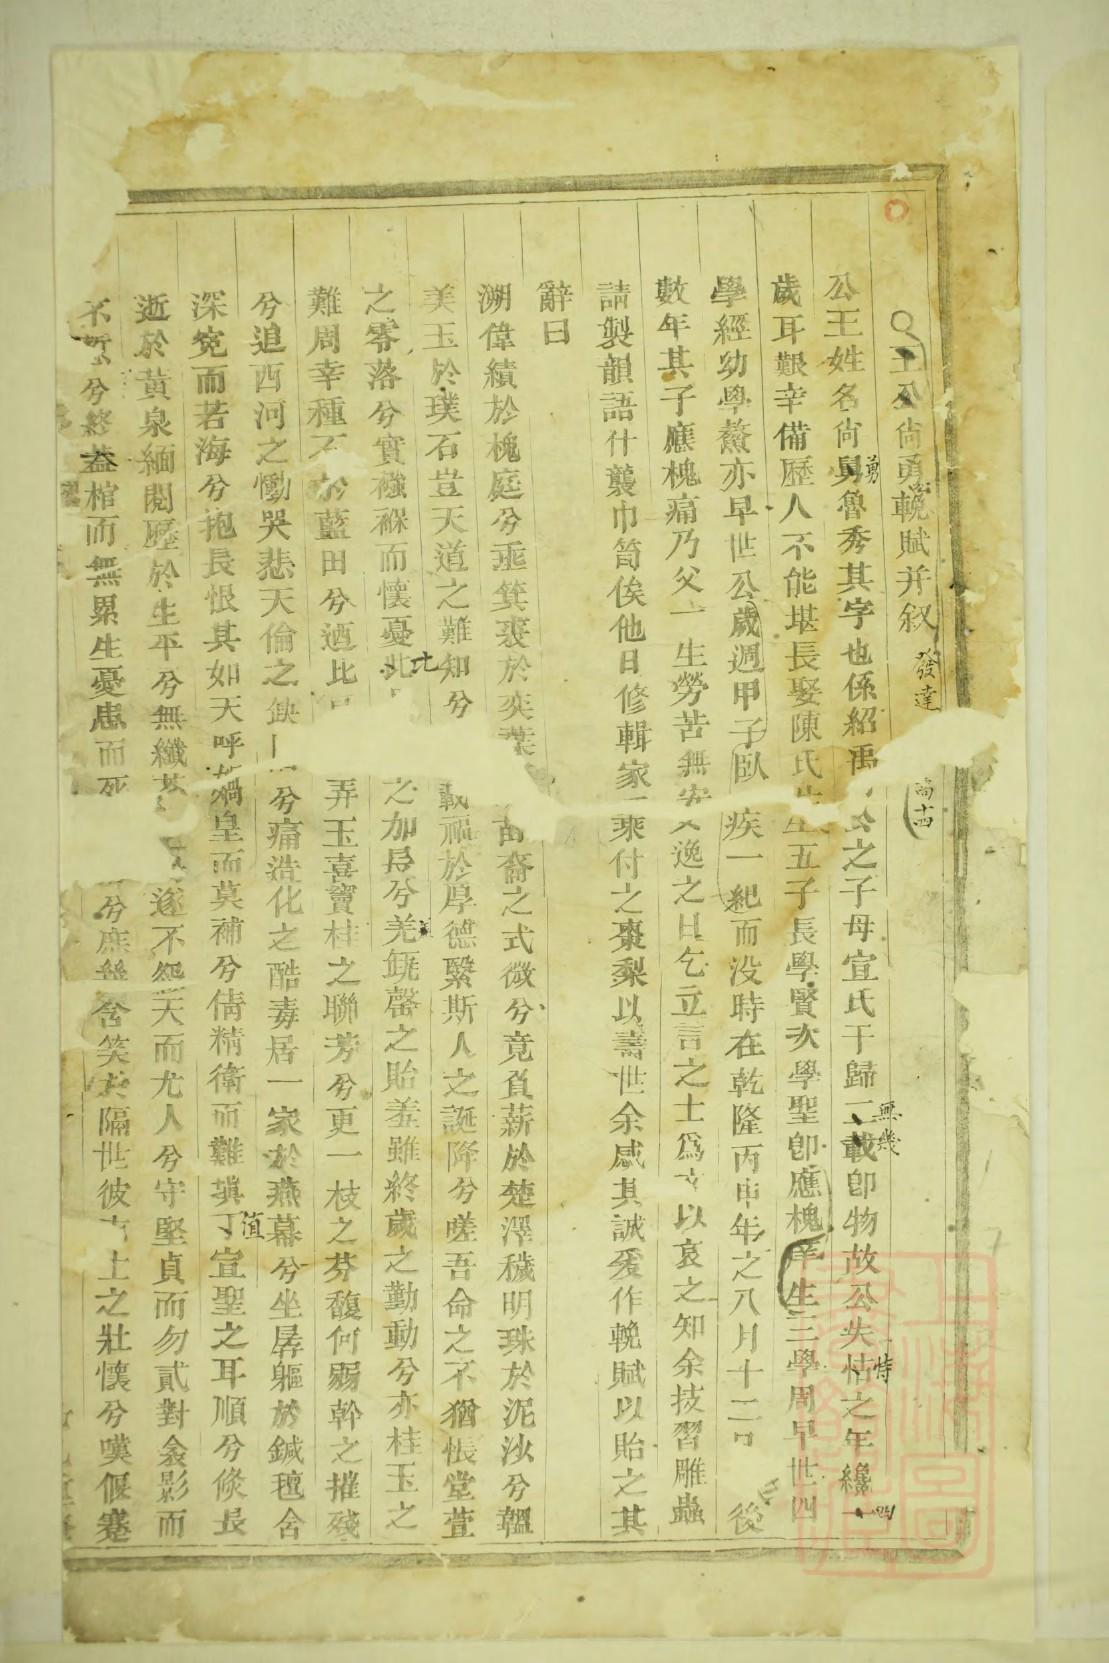 王公尙勇輓賦并叙
發達
尚十四
公王姓名尙勇魯秀其字也係紹禹公之子母宣氏于歸二載卽物故公失怙之年纔一
勇
無幾
恃
四
歲耳艱辛備歷人不能堪長娶陳氏生五子長學賢次學聖卽應槐羊生三學周早世四
學經幼學鰲亦早世公歲週甲子臥疾一紀而没時在乾隆丙申年之八月十二日後
數年其子應槐痛乃父一生勞苦無安逸之日乞立言之士爲文以哀之知余技習雕蟲
請製韻語什襲巾笥俟他日修輯家乘付之棗梨以壽世余感其誠爰作輓賦以貽之其
辭曰
溯偉績於槐庭兮垂箕裘於奕葉苗裔之式微兮竟負薪於楚澤穢明珠於泥沙兮韞
美玉於璞石豈天道之難知兮載福於厚德繄斯人之誕降兮嗟吾命之不猶悵堂萱
之零落兮實襁褓而懷憂此之加長兮羌缾罄之貽羞雖終歲之勤動兮亦桂玉之
比
難周幸種玉於藍田兮迺比弄玉喜竇桂之聯芳兮更一枝之芬馥何弱幹之摧殘
兮追西河之慟哭悲天倫之缺兮痛造化之酷毒居一家於燕幕兮坐孱軀於鍼氊含
深寃而若海兮抱長恨其如天呼媧皇而莫補兮倩精衛而難塡丁宣聖之耳順兮倏長
值
逝於黄泉緬閱歷於生平兮無纖遂不怨天而尤人兮守堅貞而勿貳對衾影而
不兮終蓋棺而無累生憂患而死兮庶含笑於隔世彼吉土之壯懷兮嘆偃蹇